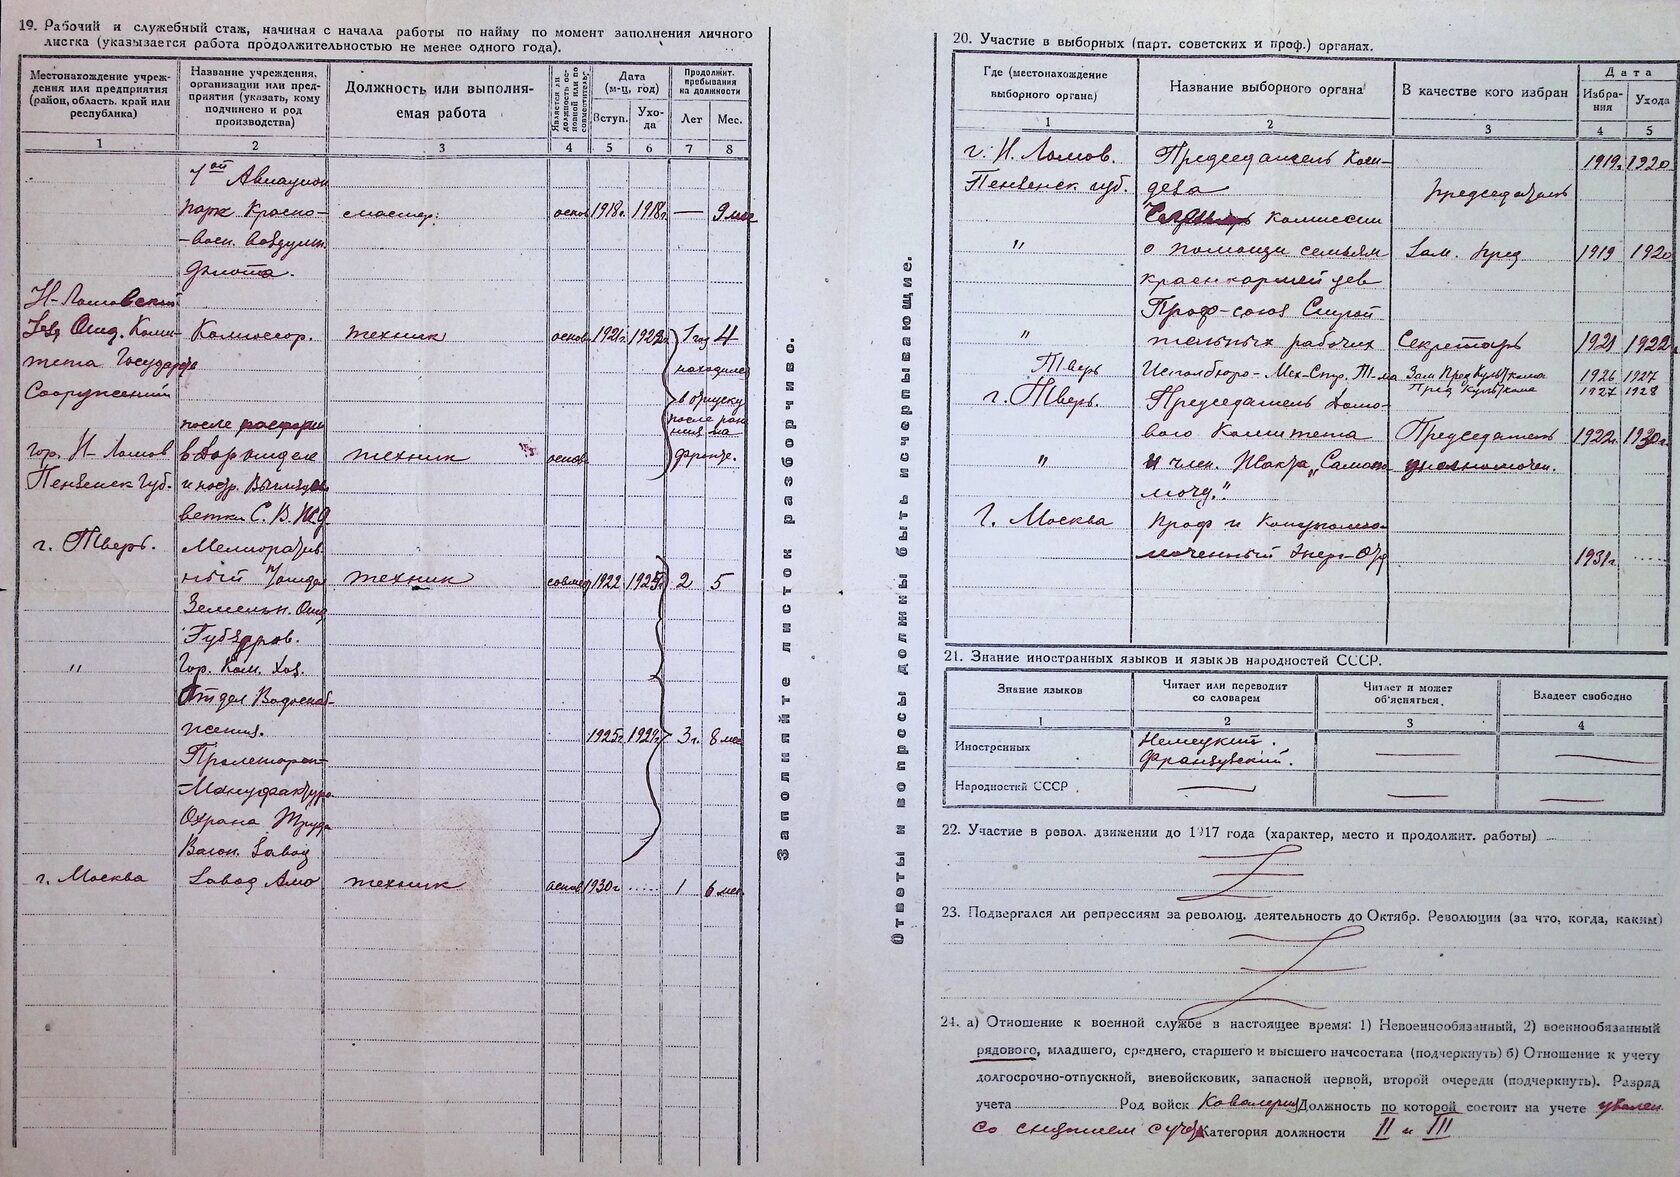 19. Рабочий и служебный стаж, начиная с начала работы по найму по момент заполнения личного
листка (указывается работа продолжительностью не менее одного года).
Местонахождение учреж-
дения или предприятия
(район, область. край или
республика)
Название учреждения,
организации или пред-
приятия (указать, кому
подчинено и род
производства)
Должность или выполня-
емая работа
Является ли
должность ос-
новной или по
совместительс.
Дата
(м-ц, год)
Вступ.
Ухо-
да
Продолжит.
пребывания
на должности
Лет
Мес.
1 2 3 4 5 6 7 8
1ой Авиацион
парк Красно- мастер. основ 1918г. 1918г. — 9 мес
-воен. воздушн.
флота.
Н-Ломовский
Отд. Коми- Комиссар. техник основ 1921г. 1922г. 1 год 4
тета Государств
Сооружений
находился
в отпуску
после ран
фронте.
после расформ
гор. Н-Ломов техник основ.
Пензенск. губ.
ветки С. В. Ж.Д.
г. Тверь. Мелиоратив.
ный техник совмес 1922 1925г. 2 5
Земельн. Отд
Губздров.
" Гор. Ком. Хоз.
Отдел Водоснаб-
жения. 1925г. 1929г. 3 г. 8 мес
Пролеторск-
-Мануфактура
Охрана Труда
Вагон. Завод
г. Москва Завод Амо техник основ 1930г ..... 1 6 мес.
Заполняйте листок разборчиво.
Ответы и вопросы должны быть исчерпывающие.
20. Участие в выборных (парт. советских и проф.) органах.
Где (местонахождение
выборного органа)
Название выборного органа
В качестве кого избран
Дата
Избра-
ния
Ухода
1 2 3 4 5
г. Н. Ломов. Председатель Ком- 1919г. 1920
Пензенск губ. деза председатель
комиссии
" о помощи семьям Зам. пред 1919 1920
красноармейцев
Проф-союз Строй
" тельных рабочих Секретарь 1921 1922
Тверь Исполбюро- Мех-Стр. Т-ма Зам Пред Культкома 1926 1927
Пред Культкома 1927 1928
г. Тверь. Председатель Домо-
вого Комитета Председатель 1922г. 1930г
" и член. Жакта „Самопо уполномочен.
мощь."
Г. Москва Проф и Коопуполно-
моченный Энерг-Отд 1931г. .....
21. Знание иностранных языков и языков народностей СССР.
Знание языков
Читает или переводит
со словарем
Читает и может
об'ясняться.
Владеет свободно
1 2 3 4
Иностранных Немецкий. — —
Французский.
Народностей СССР — — —
22. Участие в револ. движении до 1917 года (характер, место и продолжит. работы)
23. Подвергался ли репрессиям за революц. деятельность до Октябр. Революции (за что, когда, каким)
24. а) Отношение к военной службе в настоящее время: 1) Невоеннообязанный, 2) военнообязанный
рядового, младшего, среднего, старшего и высшего начсостава (подчеркнуть) б) Отношение к учету
долгосрочно-отпускной, вневойсковик, запасной первой, второй очереди (подчеркнуть). Разряд
учета Род войск Ковалерия Должность по которой состоит на учете уволен
со снятием с учета Категория должности II и III